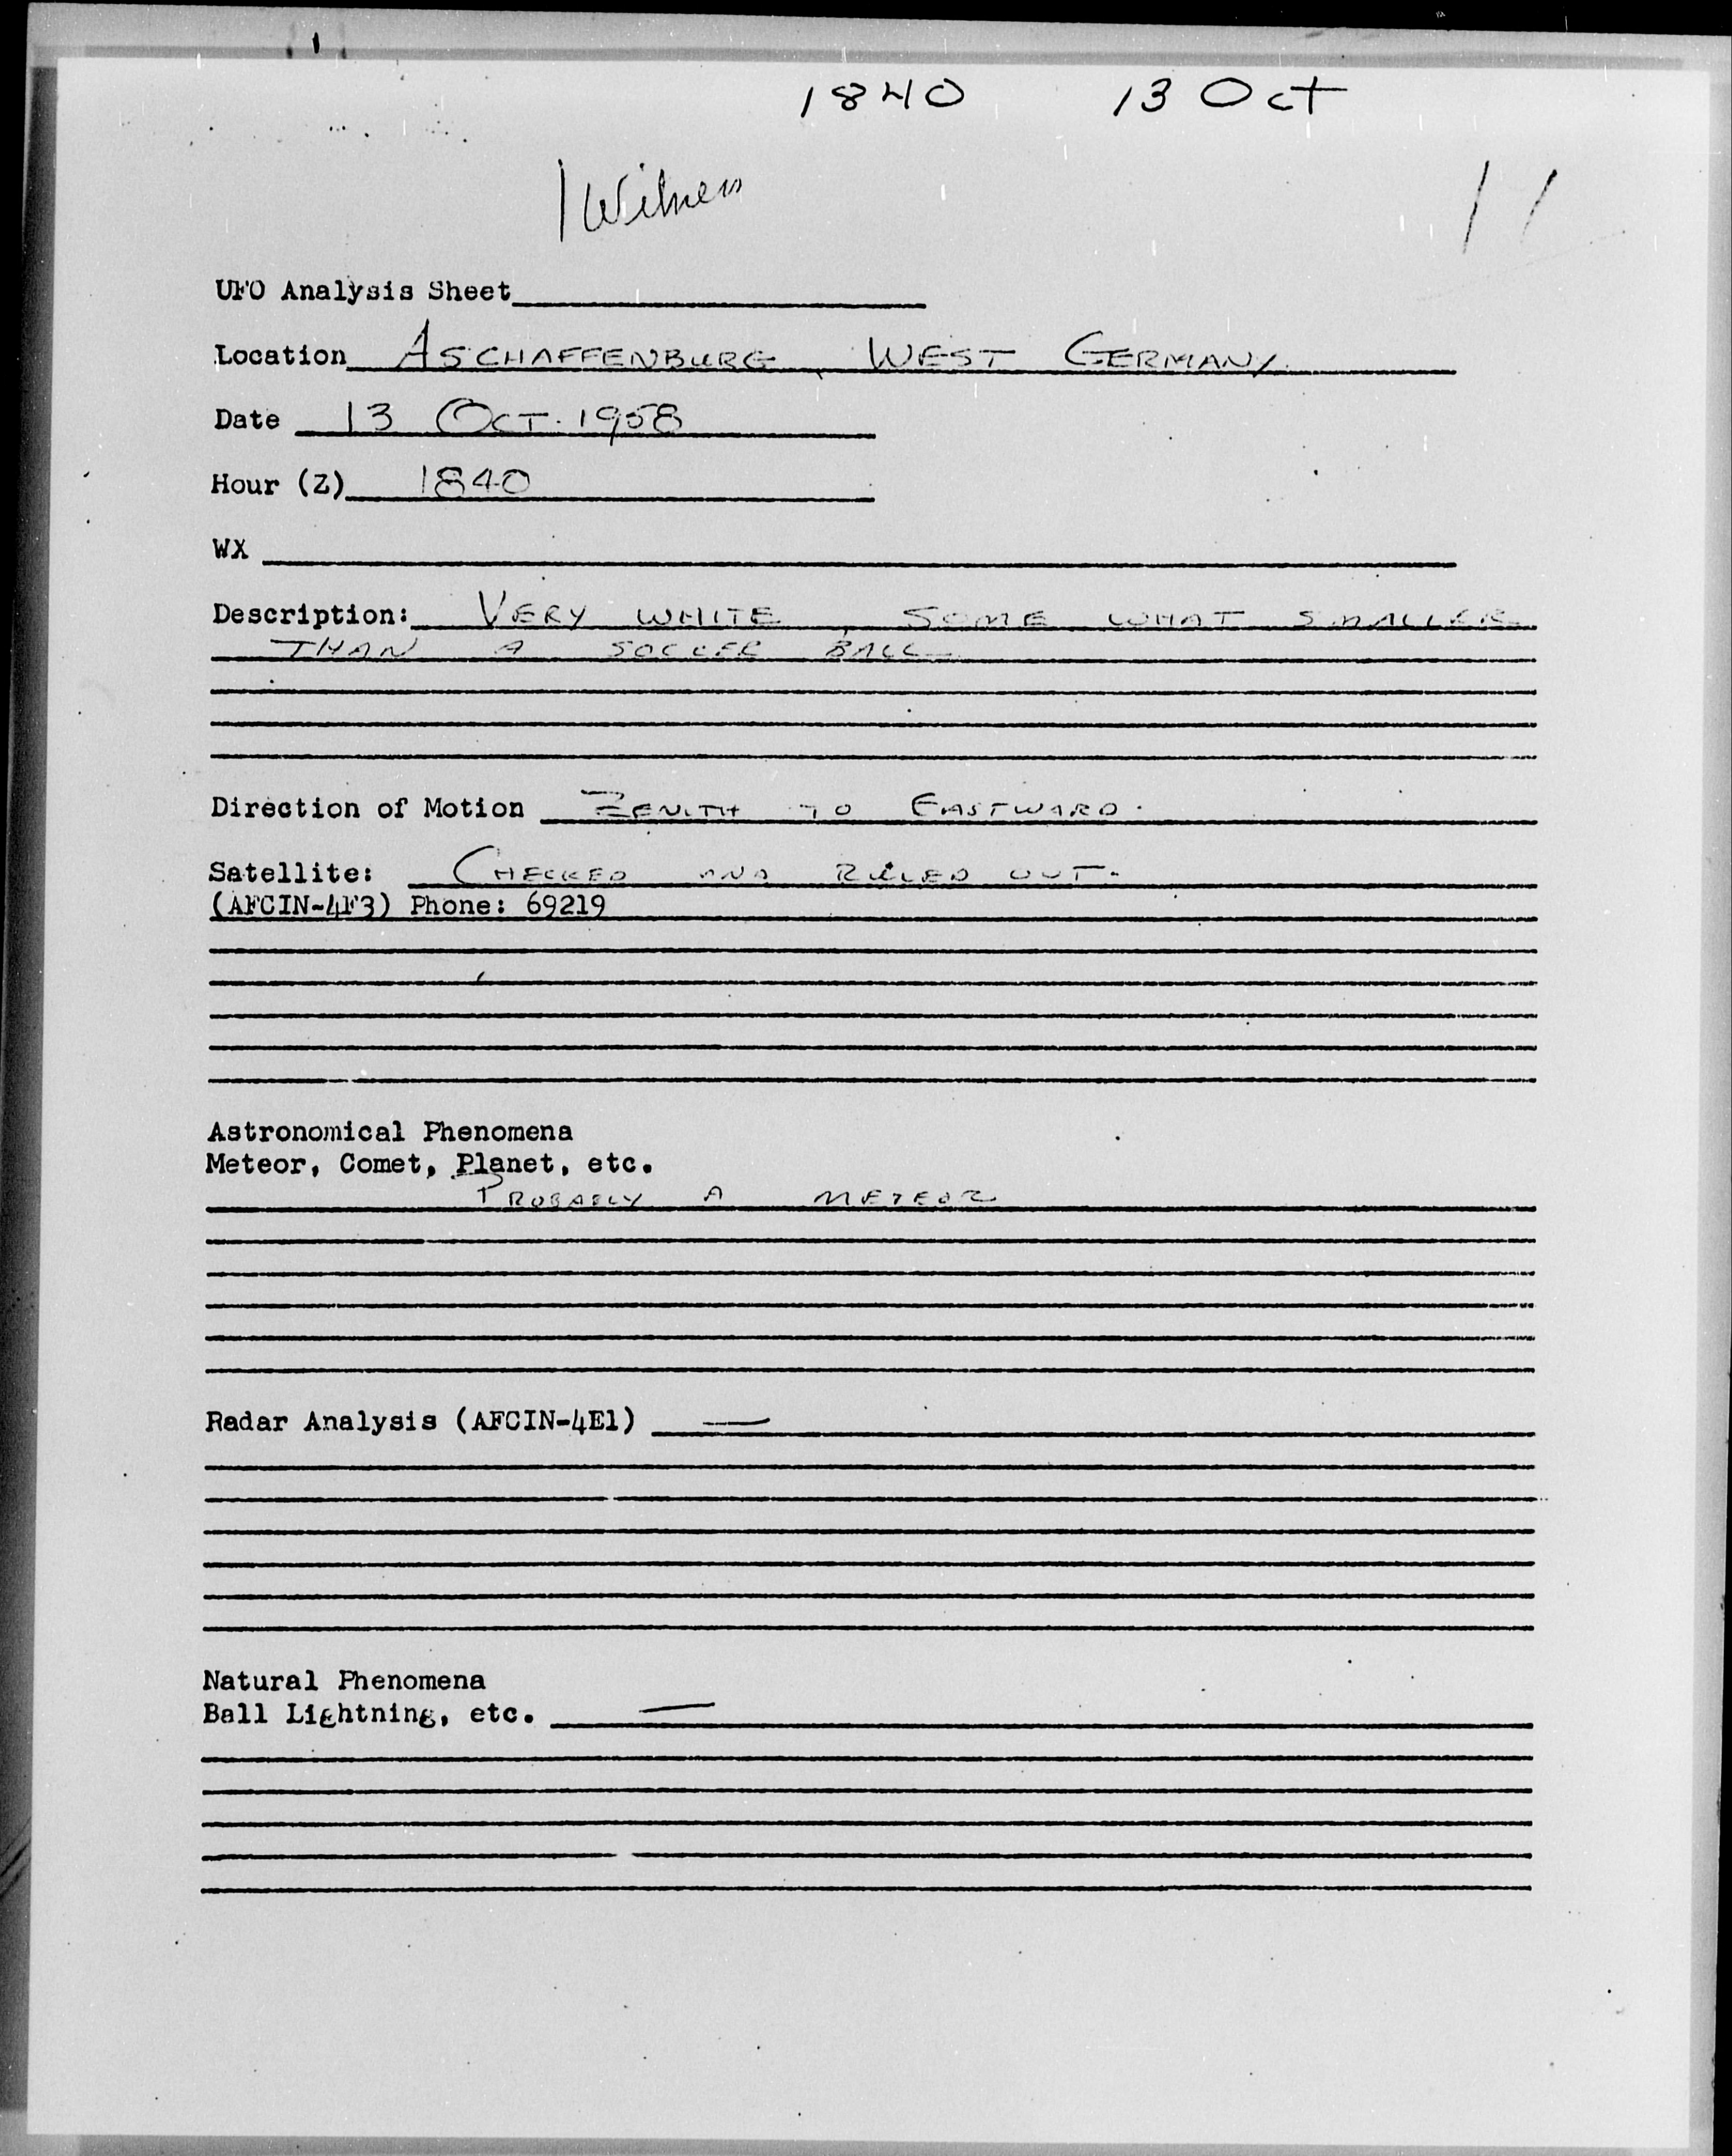 1840 13 Oct
1 Witness
UFO Analysis Sheet
Location ASCHAFFENBURG, WEST GERMANY
Date 13 OCT. 1958
Hour (Z) 1840
WX
Description: VERY WHITE, SOME WHAT SMALLER
THAN A SOCCER BALL
Direction of Motion ZENITH TO EASTWARD.
Satellite: CHECKED AND RULED OUT.
(AFCIN-4F3) Phone: 69219
Astronomical Phenomena
Meteor, Comet, Planet, etc.
PROBABLY A METEOR
Radar Analysis (AFCIN-4E1) —
Natural Phenomena
Ball Lightning, etc. —